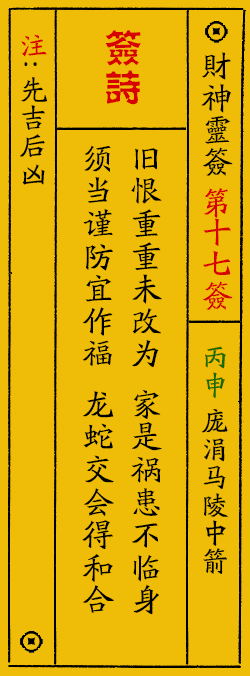 財神靈簽 第十七簽
丙申 庞涓马陵中箭
簽詩
旧恨重重未改为 家是祸患不临身
须当谨防宜作福 龙蛇交会得和合
注:先吉后凶